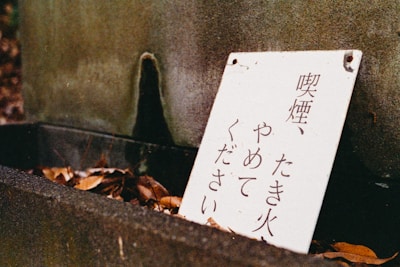 喫煙、たき火、
やめて
ください